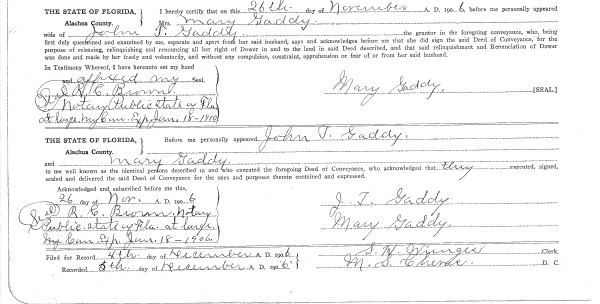 THE STATE OF FLORIDA, } I hereby certify that on this 26th day of November A. D. 1906, before me personally appeared
Alachua County. Mrs. Mary Gaddy
wife of John T. Gaddy, the grantor in the foregoing conveyance, who, being
first duly questioned and examined by me, separate and apart from her said husband, says and acknowledges before me that she did sign the said Deed of Conveyance, for the
purpose of releasing, relinquishing and renouncing all her right of Dower in and to the land in said Deed described, and that said relinquishment and Renunciation of Dower
was done and made by her freely and voluntarily, and without any compulsion, constraint, apprehension or fear of or from her said husband.
In Testimony Whereof, I have hereunto set my hand
and affixed my Seal,
Seal R. C. Brown Mary Gaddy. [SEAL.]
Notary Public state of Fla.
at large. My Com. Exp. Jan. 18-1910
THE STATE OF FLORIDA, } Before me personally appeared John T. Gaddy.
Alachua County.
and Mary Gaddy.
to me well known as the identical persons described in and who executed the foregoing Deed of Conveyance, who acknowledged that they executed, signed,
sealed and delivered the said Deed of Conveyance for the uses and purposes therein contained and expressed.
Acknowledged and subscribed before me this,
26 day of Nov. A. D. 1906 J. T. Gaddy
Seal R. C. Brown Notary Mary Gaddy.
Public. State of Fla. at large.
My Com Exp. Jan. 18-1906.
Filed for Record 4th day of December A. D. 1906 Clerk.
Recorded 5th day of December A. D. 1906 D. C.